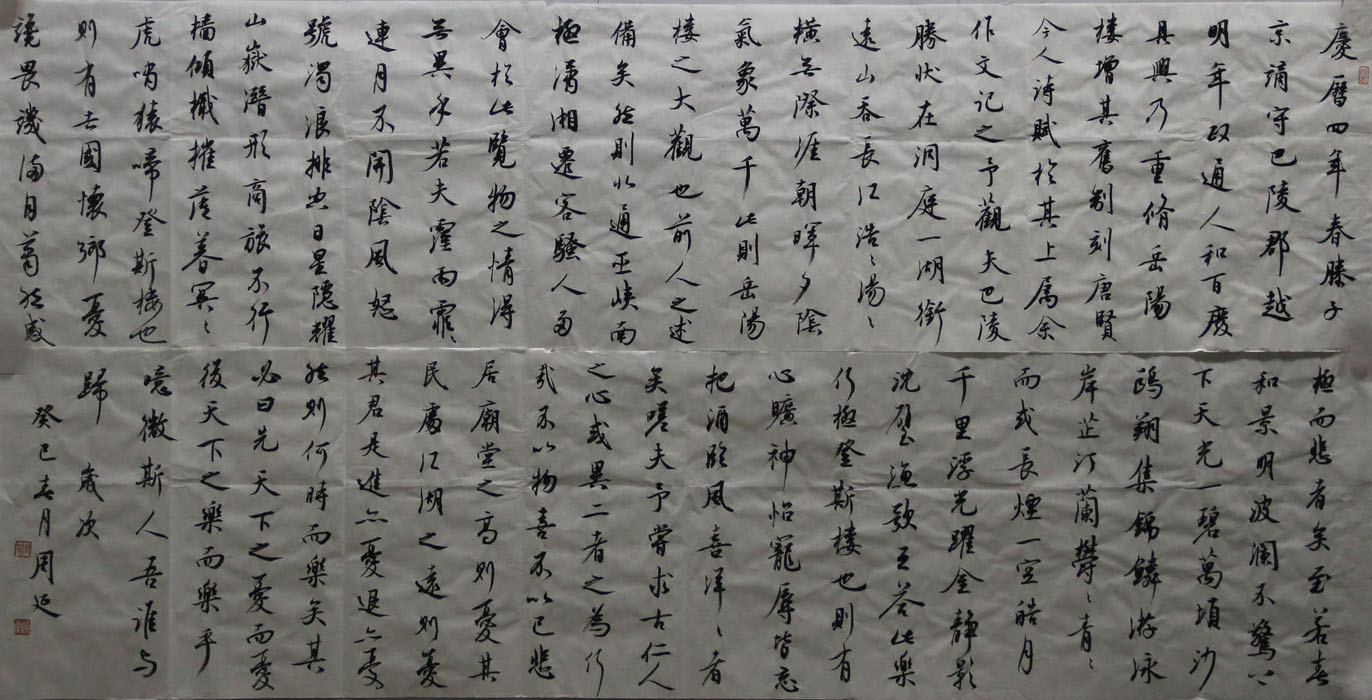 慶曆四年春滕子
京謫守巴陵郡越
明年政通人和百廢
具興乃重脩岳陽
樓增其舊制刻唐賢
今人詩賦於其上属余
作文記之予觀夫巴陵
勝狀在洞庭一湖銜
遠山吞長江浩〻湯〻
橫無際涯朝暉夕陰
氣象萬千此則岳陽
樓之大觀也前人之述
備矣然則北通巫峽南
極瀟湘遷客騷人多
會於此覽物之情得
無異乎若夫霪雨霏〻
連月不開陰風怒
號濁浪排空日星隱耀
山嶽潛形商旅不行
檣傾檝摧薄暮冥〻
虎嘯猿啼登斯樓也
則有去國懷鄉憂
讒畏譏滿目蕭然感
極而悲者矣至若春
和景明波瀾不驚上
下天光一碧萬頃沙
鷗翔集錦鱗游泳
岸芷汀蘭鬱〻青〻
而或長煙一空皓月
千里浮光躍金靜影
沉璧漁歌互答此樂
何極登斯樓也則有
心曠神怡寵辱皆忘
把酒臨風喜洋〻者
矣嗟夫予嘗求古仁人
之心或異二者之為何
哉不以物喜不以己悲
居廟堂之高則憂其
民處江湖之遠則憂
其君是進亦憂退亦憂
然則何時而樂矣其
必曰先天下之憂而憂
後天下之樂而樂乎
噫微斯人吾誰與
歸 歲次
癸巳春月周延